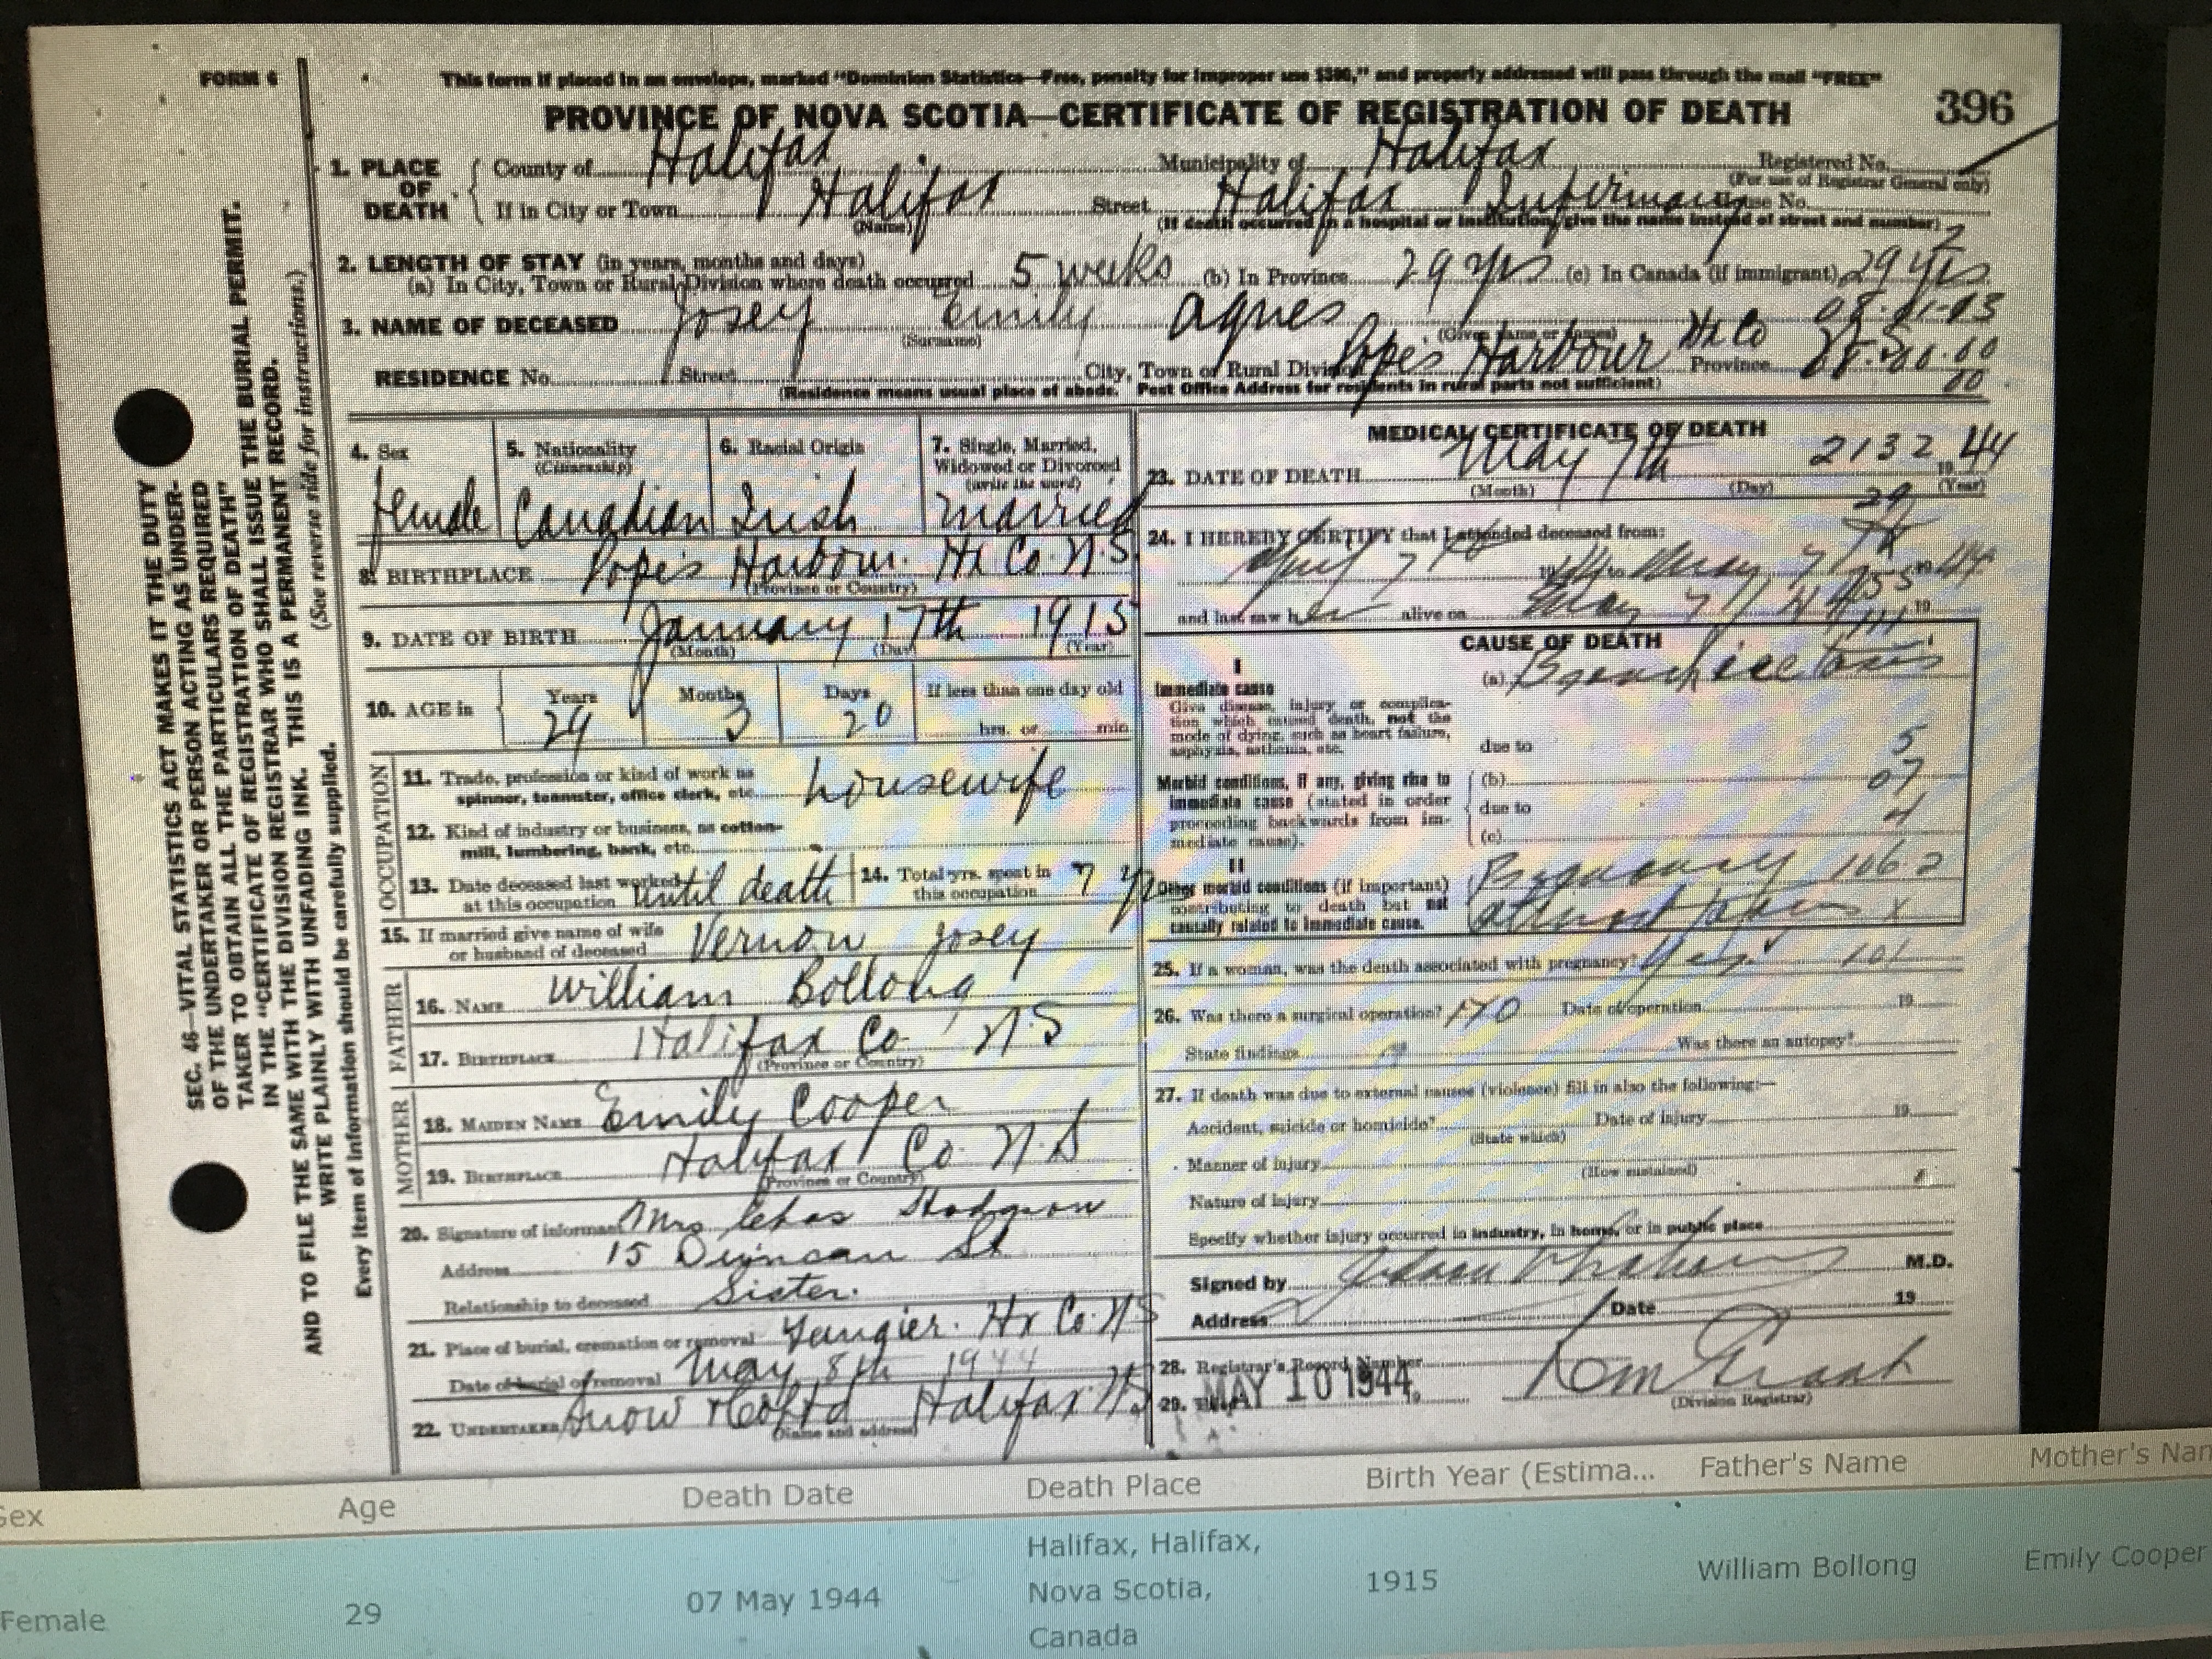 FORM 6
This form if placed in an envelope, marked "Dominion Statistics—Free, penalty for improper use $300," and properly addressed will pass through the mail "FREE"
PROVINCE OF NOVA SCOTIA—CERTIFICATE OF REGISTRATION OF DEATH 396
1. PLACE OF DEATH County of Halifax Municipality of Halifax Registered No.
(For use of Registrar General only)
If in City or Town Halifax Street Halifax Infirmary House No.
(Name) (If death occurred in a hospital or institution, give the name instead of street and number)
2
2. LENGTH OF STAY (in years, months and days)
(a) In City, Town or Rural Division where death occurred 5 weeks (b) In Province 29 yrs (c) In Canada (if immigrant) 29 yrs
3. NAME OF DECEASED Josey Emily Agnes
(Surname) (Given name or names)
RESIDENCE No. Street City, Town or Rural Division Pope's Harbour Hx Co Province
(Residence means usual place of abode. Post Office Address for residents in rural parts not sufficient)
00
SEC. 46—VITAL STATISTICS ACT MAKES IT THE DUTY
OF THE UNDERTAKER OR PERSON ACTING AS UNDER-
TAKER TO OBTAIN ALL THE PARTICULARS REQUIRED
IN THE "CERTIFICATE OF REGISTRATION OF DEATH"
AND TO FILE THE SAME WITH THE DIVISION REGISTRAR WHO SHALL ISSUE THE BURIAL PERMIT.
WRITE PLAINLY WITH UNFADING INK. THIS IS A PERMANENT RECORD.
Every item of information should be carefully supplied. (See reverse side for instructions.)
4. Sex female
5. Nationality (Citizenship) Canadian
6. Racial Origin Irish
7. Single, Married, Widowed or Divorced (write the word) married
8. BIRTHPLACE Pope's Harbour. Hx Co N.S
(Province or Country)
9. DATE OF BIRTH January 17th 1915
(Month) (Day) (Year)
10. AGE in Years 29 Months 3 Days 20 If less than one day old
hrs. or min
OCCUPATION
11. Trade, profession or kind of work as
spinner, teamster, office clerk, etc. housewife
12. Kind of industry or business, as cotton-
mill, lumbering, bank, etc.
13. Date deceased last worked
at this occupation until death
14. Total yrs. spent in
this occupation 7
15. If married give name of wife
or husband of deceased Vernon Josey
FATHER
16. NAME William Bollong
17. BIRTHPLACE Halifax Co N.S
(Province or Country)
MOTHER
18. MAIDEN NAME Emily Cooper
19. BIRTHPLACE Halifax Co. N.S
(Province or Country)
20. Signature of informant Mrs Chas Hodgson
Address 15 Duncan St
Relationship to deceased Sister.
21. Place of burial, cremation or removal Tangier. Hx Co. N S
Date of burial or removal May 8th 1944
22. UNDERTAKER Snow & Co Ltd Halifax N.S
(Name and address)
MEDICAL CERTIFICATE OF DEATH
23. DATE OF DEATH May 7th 2132 19 44
(Month) (Day) (Year)
29
24. I HEREBY CERTIFY that I attended deceased from:
7 May 7
and last saw her alive on May 7 19
CAUSE OF DEATH
I
Immediate cause
Give disease, injury or complica-
tion which caused death, not the
mode of dying, such as heart failure,
asphyxia, asthenia, etc.
(a) Bronchiectasis
due to
5
Morbid conditions, if any, giving rise to
immediate cause (stated in order
proceeding backwards from im-
mediate cause).
(b) 07
due to
4
(c)
II
Other morbid conditions (if important)
contributing to death but not
causally related to immediate cause.
Pregnancy 106.2
almost
x
25. If a woman, was the death associated with pregnancy? Yes 101
26. Was there a surgical operation? NO Date of operation 19
State findings Was there an autopsy?
27. If death was due to external causes (violence) fill in also the following:—
Accident, suicide or homicide? Date of injury 19
(State which)
Manner of injury
(How sustained)
Nature of injury
Specify whether injury occurred in industry, in home, or in public place
Signed by M.D.
Address Date 19
28. Registrar's Record Number
29. MAY 10 1944
(Division Registrar)
Sex Age Death Date Death Place Birth Year (Estima... Father's Name Mother's Nam
Female 29 07 May 1944 Halifax, Halifax, 1915 William Bollong Emily Cooper
Nova Scotia,
Canada